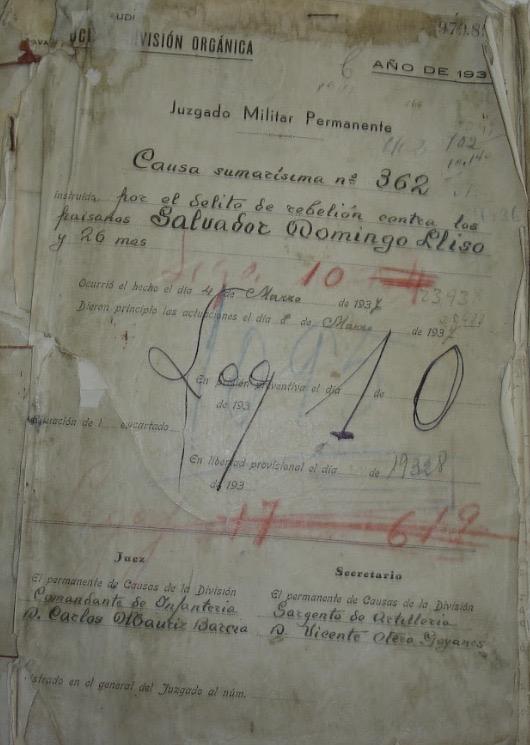 UDI
97.98
DIVISIÓN ORGÁNICA
AÑO DE 193
Juzgado Militar Permanente
102
Causa sumarísima nº 362
instruida por el delito de rebelión contra los
paisanos Salvador Domingo Lliso
y 26 mas
10
Ocurrió el hecho el día 4 de Marzo de 1937
2393
Dieron principio las actuaciones el día 8 de Marzo de 1937
Leg 10
En preventiva el día de
de 193
encartado
En libertad provisional el día de
19328
de 193
17 619
Juez
Secretario
El permanente de Causas de la División
Comandante de Infantería
D. Carlos Barcia
El permanente de Causas de la División
Sargento de Artillería
D. Vicente Otero Goyanes
istrado en el general del Juzgado al núm.